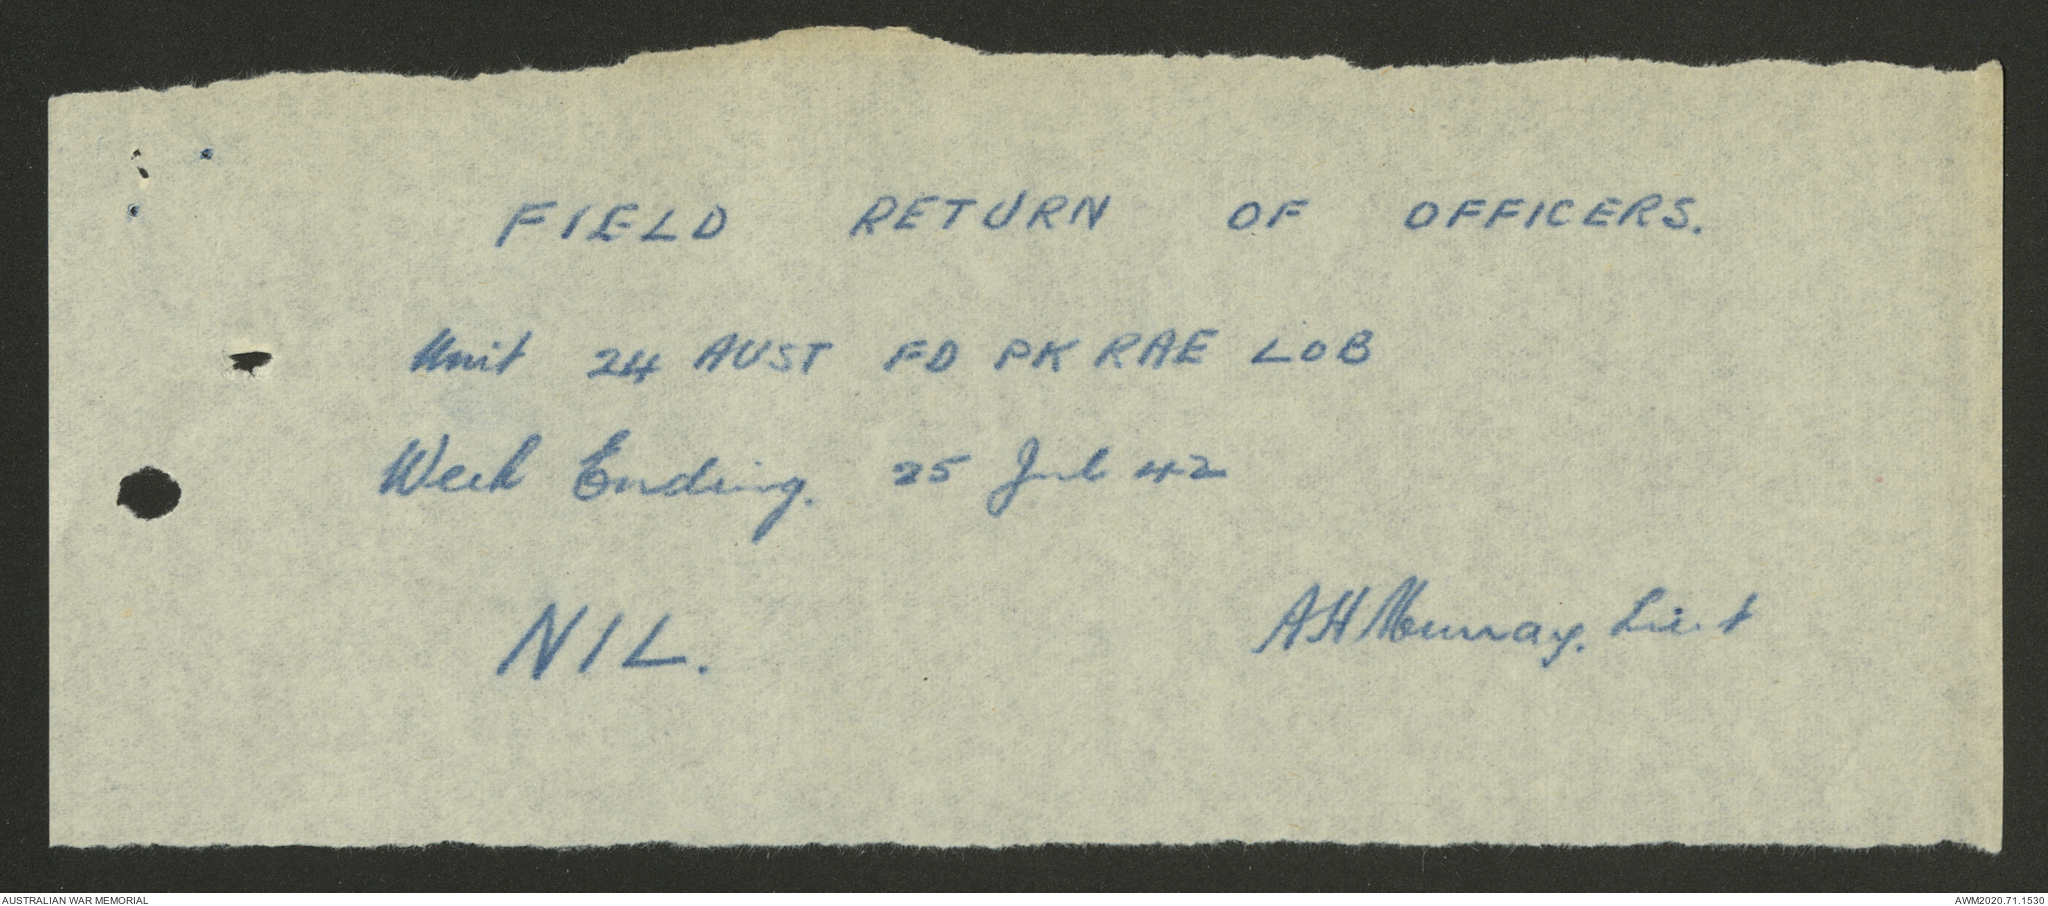 FIELD RETURN OF OFFICERS.
Unit 24 AUST FD PK RAE LOB
Week Ending. 25 Jul 42
NIL.
A H Murray. Lieut
AUSTRALIAN WAR MEMORIAL
AWM2020.71.1530